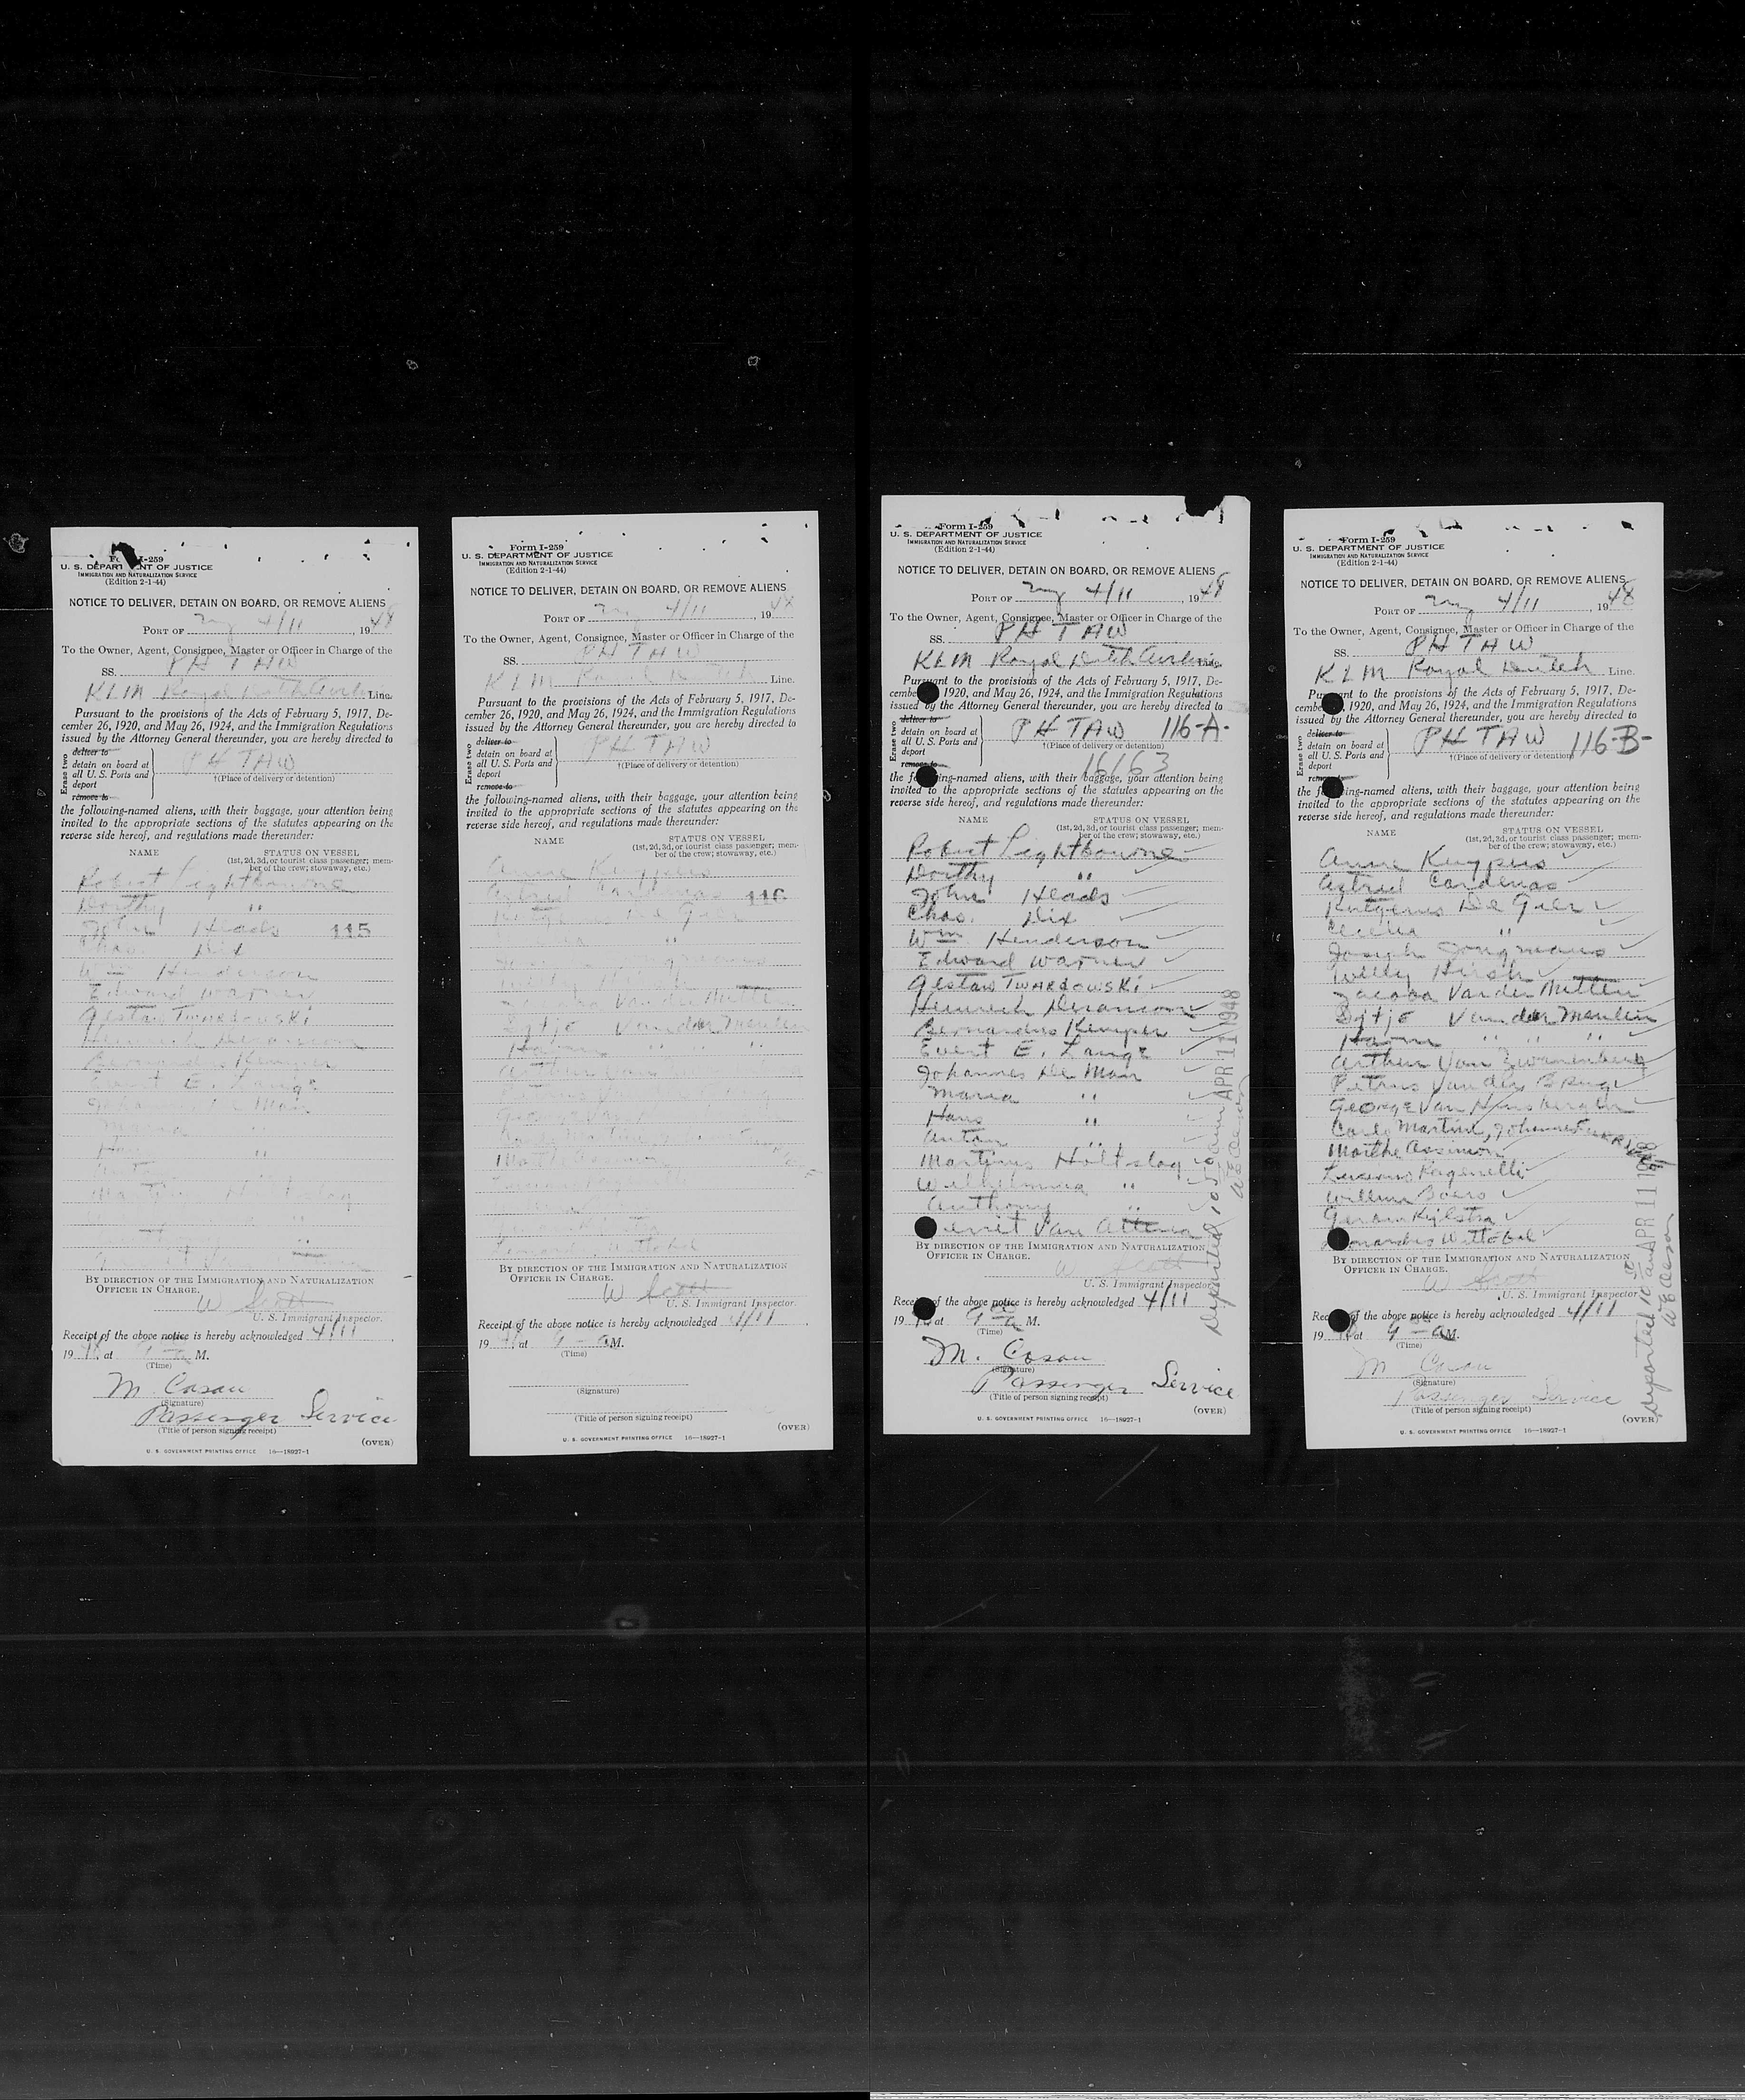 Form I-259
U. S. DEPARTMENT OF JUSTICE
IMMIGRATION AND NATURALIZATION SERVICE
(Edition 2-1-44)
NOTICE TO DELIVER, DETAIN ON BOARD, OR REMOVE ALIENS
PORT OF 4/11, 1948
To the Owner, Agent, Consignee, Master or Officer in Charge of the
SS. PH TAW
KLM Royal Dutch Airlines Line.
Pursuant to the provisions of the Acts of February 5, 1917, De-
cember 26, 1920, and May 26, 1924, and the Immigration Regulations
issued by the Attorney General thereunder, you are hereby directed to
Erase two
deliver to
detain on board at
all U. S. Ports and
deport
remove to
PH TAW
†(Place of delivery or detention)
the following-named aliens, with their baggage, your attention being
invited to the appropriate sections of the statutes appearing on the
reverse side hereof, and regulations made thereunder:
NAME STATUS ON VESSEL
(1st, 2d, 3d, or tourist class passenger; mem-
ber of the crew; stowaway, etc.)
Robert Lightbourne
Dorthy "
John Heads 115
Chas. Dix
Wm Henderson
Edward Warner
Gestaw TWARDOWSKI
Bernardus Kemper
Evert E. Lange
Johannes De Man
Maria "
Hans "
BY DIRECTION OF THE IMMIGRATION AND NATURALIZATION
OFFICER IN CHARGE.
W Scott
U. S. Immigrant Inspector.
Receipt of the above notice is hereby acknowledged 4/11
1948 at 9 a M.
(Time)
M. Cosau
(Signature)
Passenger Service
(Title of person signing receipt)
(OVER)
U. S. GOVERNMENT PRINTING OFFICE 16—18927-1
Form I-259
U. S. DEPARTMENT OF JUSTICE
IMMIGRATION AND NATURALIZATION SERVICE
(Edition 2-1-44)
NOTICE TO DELIVER, DETAIN ON BOARD, OR REMOVE ALIENS
PORT OF 4/11, 1948
To the Owner, Agent, Consignee, Master or Officer in Charge of the
SS. PH TAW
KLM Royal Dutch Line.
Pursuant to the provisions of the Acts of February 5, 1917, De-
cember 26, 1920, and May 26, 1924, and the Immigration Regulations
issued by the Attorney General thereunder, you are hereby directed to
Erase two
deliver to
detain on board at
all U. S. Ports and
deport
remove to
PH TAW
†(Place of delivery or detention)
the following-named aliens, with their baggage, your attention being
invited to the appropriate sections of the statutes appearing on the
reverse side hereof, and regulations made thereunder:
NAME STATUS ON VESSEL
(1st, 2d, 3d, or tourist class passenger; mem-
ber of the crew; stowaway, etc.)
Anne Kuypers
Astrid Cardenas 116
De Gier
"
Van der Mutten
Sytje Van der Meulen
Harm " " "
Arthur Van
George Van
BY DIRECTION OF THE IMMIGRATION AND NATURALIZATION
OFFICER IN CHARGE.
W Scott
U. S. Immigrant Inspector.
Receipt of the above notice is hereby acknowledged 4/11
1948 at 9 a M.
(Time)
(Signature)
(Title of person signing receipt)
(OVER)
U. S. GOVERNMENT PRINTING OFFICE 16—18927-1
Form I-259
U. S. DEPARTMENT OF JUSTICE
IMMIGRATION AND NATURALIZATION SERVICE
(Edition 2-1-44)
NOTICE TO DELIVER, DETAIN ON BOARD, OR REMOVE ALIENS
PORT OF 4/11, 1948
To the Owner, Agent, Consignee, Master or Officer in Charge of the
SS. PH TAW
KLM Royal Dutch Airlines
Pursuant to the provisions of the Acts of February 5, 1917, De-
cember 1920, and May 26, 1924, and the Immigration Regulations
issued by the Attorney General thereunder, you are hereby directed to
Erase two
deliver to
detain on board at
all U. S. Ports and
deport
remove to
PH TAW 116-A-
†(Place of delivery or detention)
16163
the following-named aliens, with their baggage, your attention being
invited to the appropriate sections of the statutes appearing on the
reverse side hereof, and regulations made thereunder:
NAME STATUS ON VESSEL
(1st, 2d, 3d, or tourist class passenger; mem-
ber of the crew; stowaway, etc.)
Robert Lightbourne
Dorthy "
John Heads
Chas. Dix
Wm Henderson
Edward Warner
Gestaw TWARDOWSKI
Heinrich
Bernardus Kemper
Evert E. Lange
Johannes De Man
Maria "
Hans "
Anton "
Martinus Holtslag
Wilhelmina "
Anthony "
erret Van
BY DIRECTION OF THE IMMIGRATION AND NATURALIZATION
OFFICER IN CHARGE.
W Scott
U. S. Immigrant Inspector.
Receipt of the above notice is hereby acknowledged 4/11
19 at 9 a M.
(Time)
M. Cosau
(Signature)
Passenger Service
(Title of person signing receipt)
(OVER)
U. S. GOVERNMENT PRINTING OFFICE 16—18927-1
Deported 1050am APR 11 1948
Form I-259
U. S. DEPARTMENT OF JUSTICE
IMMIGRATION AND NATURALIZATION SERVICE
(Edition 2-1-44)
NOTICE TO DELIVER, DETAIN ON BOARD, OR REMOVE ALIENS
PORT OF 4/11, 1948
To the Owner, Agent, Consignee, Master or Officer in Charge of the
SS. PH TAW
KLM Royal Dutch Line.
Pursuant to the provisions of the Acts of February 5, 1917, De-
cember 1920, and May 26, 1924, and the Immigration Regulations
issued by the Attorney General thereunder, you are hereby directed to
Erase two
deliver to
detain on board at
all U. S. Ports and
deport
remove to
PH TAW 116-B-
†(Place of delivery or detention)
the following-named aliens, with their baggage, your attention being
invited to the appropriate sections of the statutes appearing on the
reverse side hereof, and regulations made thereunder:
NAME STATUS ON VESSEL
(1st, 2d, 3d, or tourist class passenger; mem-
ber of the crew; stowaway, etc.)
Anne Kuypers
Astrid Cardenas
Rutgerus De Gier
Cecelia "
Joseph Jongmans
Willy Hirsh
Jacoba Van der Mutten
Sytje Van der Meulen
Harm " " "
Arthur Van Zwanenberg
Petrus Van der Brug
George Van Hinsbergen
Carlo Martini, Johannes
Marthe Assimon
Luciano Raganelli
Willem Boers
Geram Kijlstra
onardus Wittebol
BY DIRECTION OF THE IMMIGRATION AND NATURALIZATION
OFFICER IN CHARGE.
W Scott
U. S. Immigrant Inspector
Receipt of the above notice is hereby acknowledged 4/11
19 at 9 a M.
(Time)
M Cosau
(Signature)
Passenger Service
(Title of person signing receipt)
(OVER)
U. S. GOVERNMENT PRINTING OFFICE 16—18927-1
Deported 10 am APR 11 1948